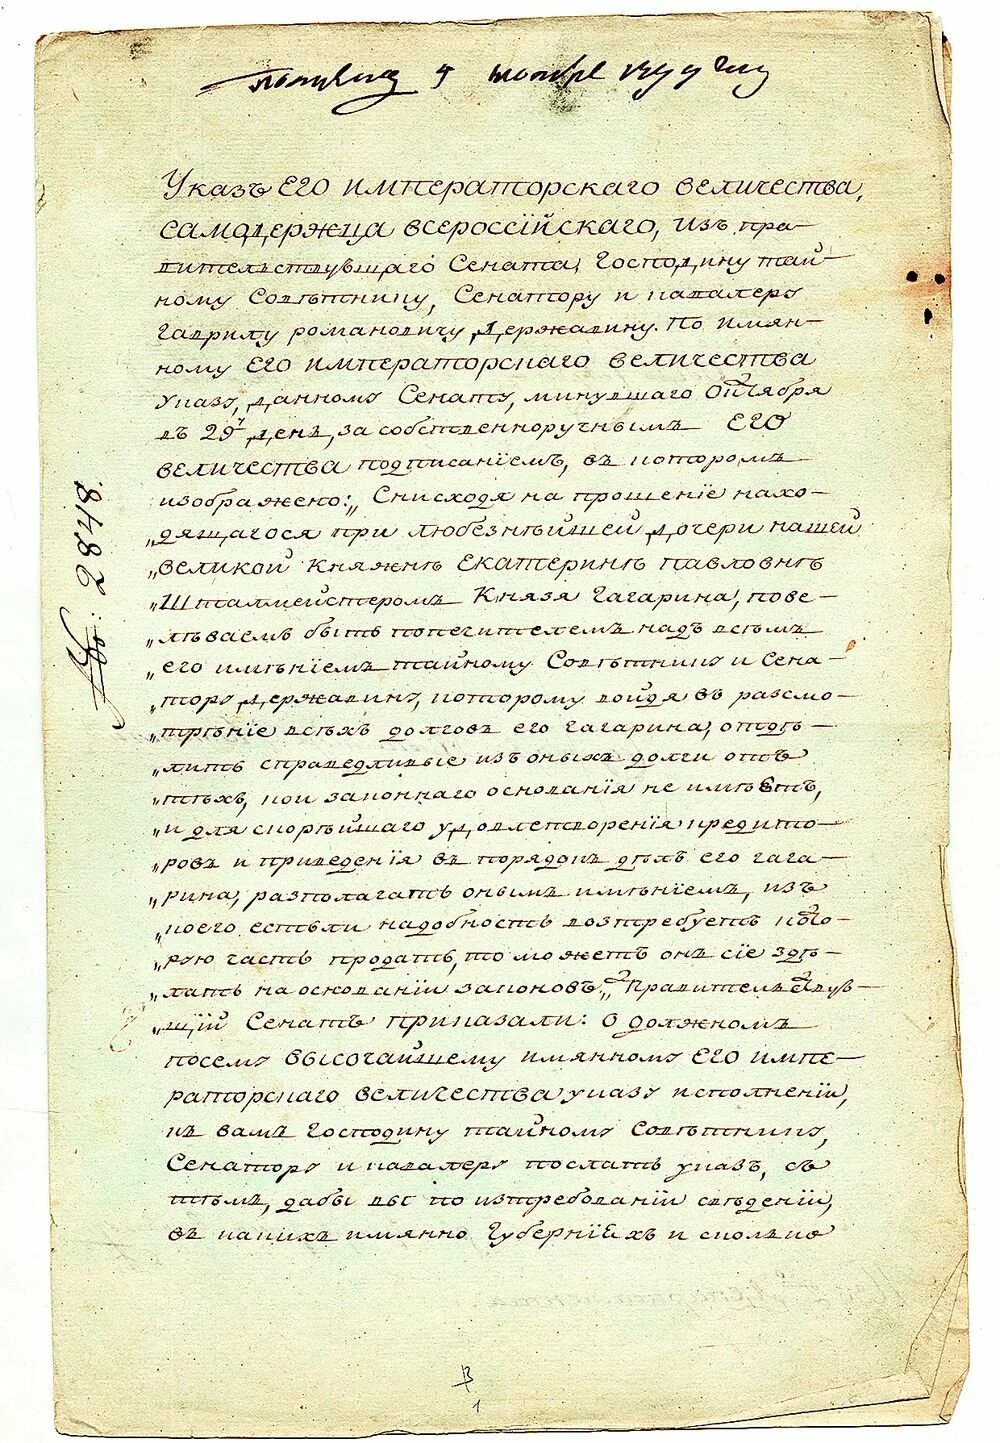 ноября 1799 году
Указъ ЕГО ИМПЕРАТОРСКАГО ВЕЛИЧЕСТВА,
САМОДЕРЖЦА ВСЕРОССІЙСКАГО, изъ пра-
вительствующаго Сената, Господину тай-
ному Совѣтнику, Сенатору и кавалеру
Гаврилу романовичу Державину. По имян-
ному ЕГО ИМПЕРАТОРСКАГО ВЕЛИЧЕСТВА
указу, данному Сенату, минувшаго Октября
въ 29й день, за собственноручнымъ ЕГО
ВЕЛИЧЕСТВА подписаніемъ, въ которомъ
изображено: „Снисходя на прошеніе нахо-
„дящагося при любезнѣйшей дочери нашей
„ВЕЛИКОЙ КНЯЖНѢ ЕКАТЕРИНѢ ПАВЛОВНѢ
„Шталмейстеромъ Князя Гагарина, пове-
„лѣваемъ быть попечителемъ надъ всѣмъ
„его имѣніемъ тайному Совѣтнику и Сена-
„тору Державину, которому войдя въ разсмо-
„трѣніе всѣхъ долговъ его Гагарина, отдѣ-
„лить справедливые изъ оныхъ долги отъ
„тѣхъ, кои законнаго основанія не имѣютъ,
„и для скорѣйшаго удовлетворенія кредито-
„ровъ и приведенія въ порядокъ дѣлъ его гага-
„рина, разполагать онымъ имѣніемъ, изъ
„коего естьли надобность возтребуетъ кото-
„рую часть продать, то можетъ онъ сіе здѣ-
„лать на основаніи законовъ.„ Правительствую-
„щій Сенатъ приказали: о должномъ
посему высочайшему имянному ЕГО ИМПЕ-
РАТОРСКАГО ВЕЛИЧЕСТВА указу исполненіи,
къ вамъ господину тайному Совѣтнику,
Сенатору и кавалеру послать указъ, съ
тѣмъ, дабы вы по изтребованіи свѣденіи,
въ какихъ имянно Губерніяхъ и сколько
2848.
1